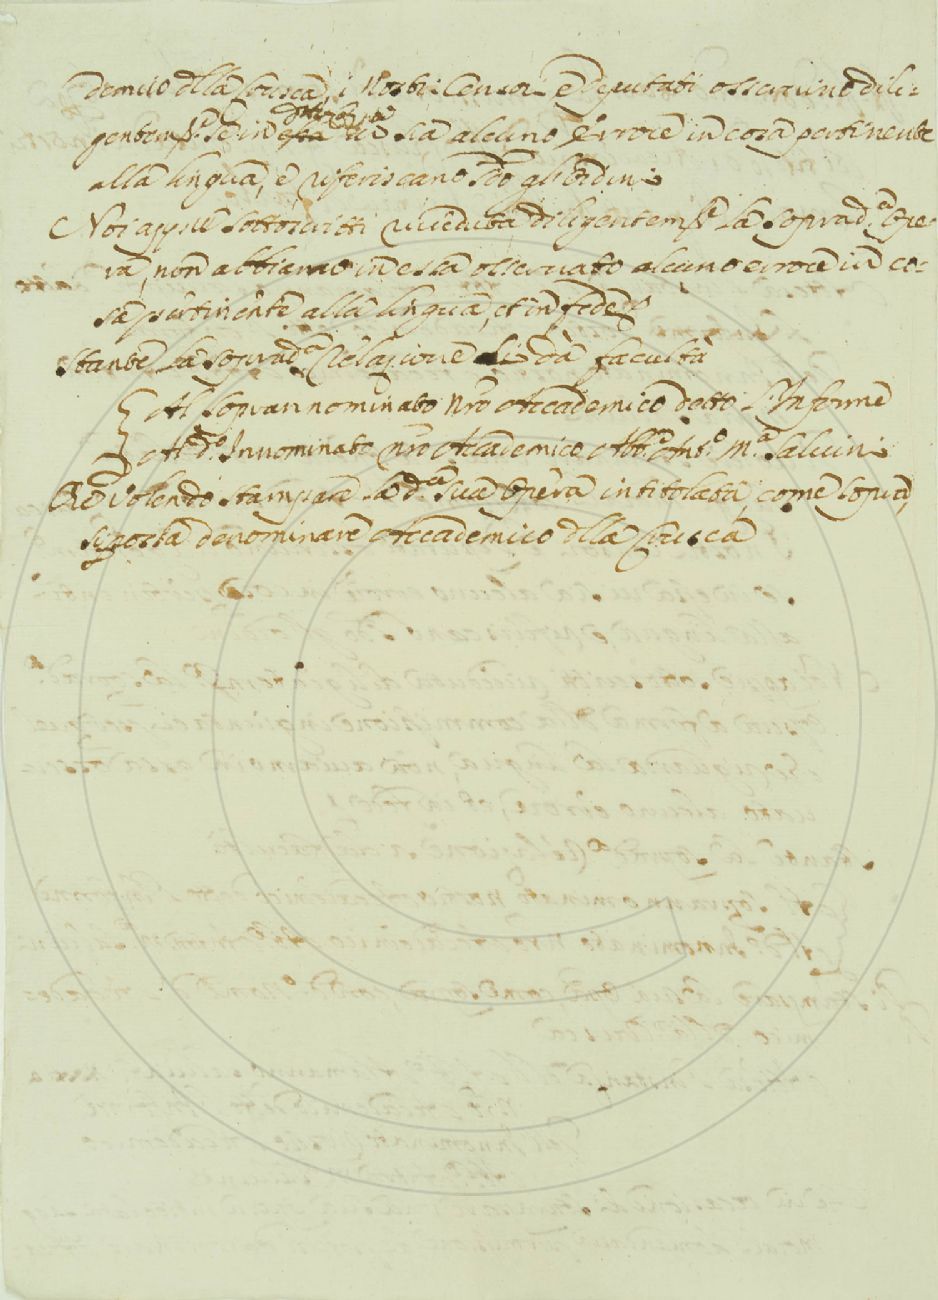 demico dlla Crusca, i Nostri Censori e Deputati osservino dili-
gentem.e se in detta Opera vi sia alcuno errore in cosa pertinente
alla lingua, e riferiscano s.do gli Ordini
Noi appiè sottoscritti riveduta diligentem.e la soprad.a Ope-
ra, non abbiamo in essa osservato alcuno errore in co-
sa pertinente alla lingua, et in fede
Stante la soprad.a Relazione Si dà facultà
Al soprannominato Nro Accademico detto l'Informe
Al d.o Innominato nro Accademico Abb.e Ant.o M.a Salvini
Che volendo stampare la d.a sua Opera intitolata, come sopra,
si possa denominare Accademico dlla Crusca